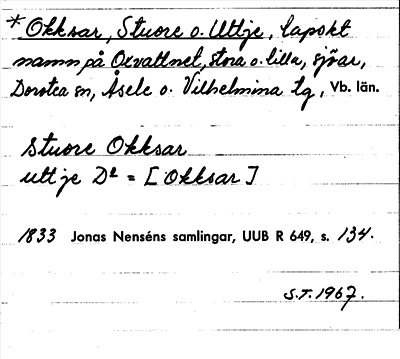 * Okksar, Stuore o. Uttje, lapskt
namn på Oxvattnet, stora o. lilla, sjöar,
Dorotea sn, Åsele o. Vilhelmina tg, Vb. län.
Stuore Okksar
uttje Do = [Okksar]
1833 Jonas Nenséns samlingar, UUB R 649, s. 134.
S.T. 1967.